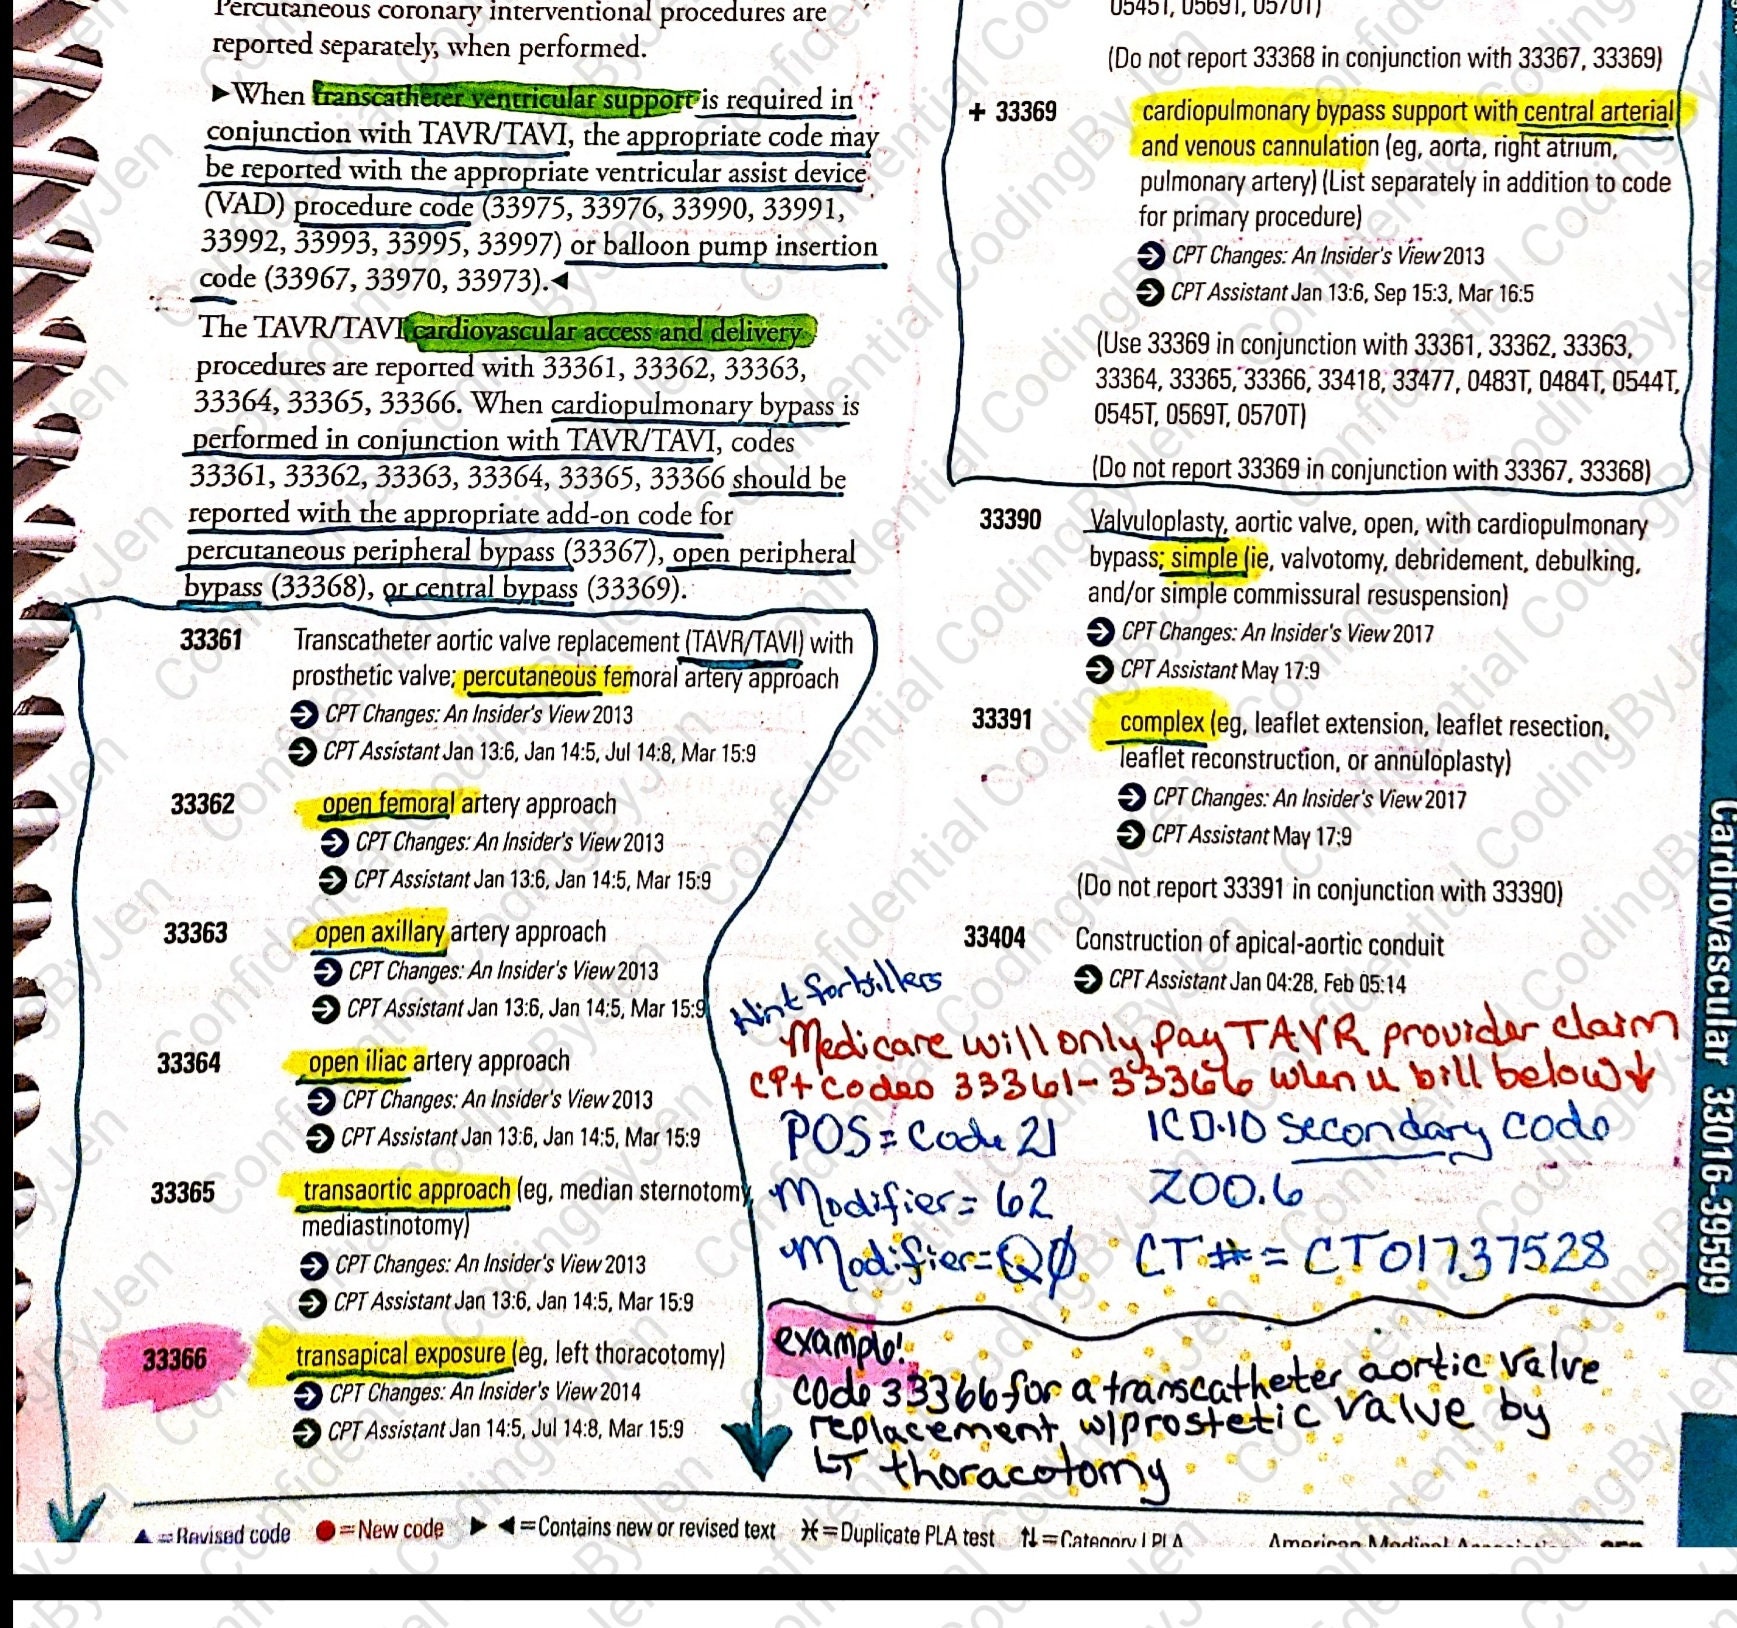 Percutaneous coronary interventional procedures are
reported separately, when performed.
►When transcatheter ventricular support is required in
conjunction with TAVR/TAVI, the appropriate code may
be reported with the appropriate ventricular assist device
(VAD) procedure code (33975, 33976, 33990, 33991,
33992, 33993, 33995, 33997) or balloon pump insertion
code (33967, 33970, 33973).◄
The TAVR/TAVI cardiovascular access and delivery
procedures are reported with 33361, 33362, 33363,
33364, 33365, 33366. When cardiopulmonary bypass is
performed in conjunction with TAVR/TAVI, codes
33361, 33362, 33363, 33364, 33365, 33366 should be
reported with the appropriate add-on code for
percutaneous peripheral bypass (33367), open peripheral
bypass (33368), or central bypass (33369).
33361 Transcatheter aortic valve replacement (TAVR/TAVI) with
prosthetic valve; percutaneous femoral artery approach
CPT Changes: An Insider's View 2013
CPT Assistant Jan 13:6, Jan 14:5, Jul 14:8, Mar 15:9
33362 open femoral artery approach
CPT Changes: An Insider's View 2013
CPT Assistant Jan 13:6, Jan 14:5, Mar 15:9
33363 open axillary artery approach
CPT Changes: An Insider's View 2013
CPT Assistant Jan 13:6, Jan 14:5, Mar 15:9
33364 open iliac artery approach
CPT Changes: An Insider's View 2013
CPT Assistant Jan 13:6, Jan 14:5, Mar 15:9
33365 transaortic approach (eg, median sternotomy,
mediastinotomy)
CPT Changes: An Insider's View 2013
CPT Assistant Jan 13:6, Jan 14:5, Mar 15:9
33366 transapical exposure (eg, left thoracotomy)
CPT Changes: An Insider's View 2014
CPT Assistant Jan 14:5, Jul 14:8, Mar 15:9
0545T, 0569T, 0570T)
(Do not report 33368 in conjunction with 33367, 33369)
+ 33369 cardiopulmonary bypass support with central arterial
and venous cannulation (eg, aorta, right atrium,
pulmonary artery) (List separately in addition to code
for primary procedure)
CPT Changes: An Insider's View 2013
CPT Assistant Jan 13:6, Sep 15:3, Mar 16:5
(Use 33369 in conjunction with 33361, 33362, 33363,
33364, 33365, 33366, 33418, 33477, 0483T, 0484T, 0544T,
0545T, 0569T, 0570T)
(Do not report 33369 in conjunction with 33367, 33368)
33390 Valvuloplasty, aortic valve, open, with cardiopulmonary
bypass; simple (ie, valvotomy, debridement, debulking,
and/or simple commissural resuspension)
CPT Changes: An Insider's View 2017
CPT Assistant May 17:9
33391 complex (eg, leaflet extension, leaflet resection,
leaflet reconstruction, or annuloplasty)
CPT Changes: An Insider's View 2017
CPT Assistant May 17:9
(Do not report 33391 in conjunction with 33390)
33404 Construction of apical-aortic conduit
CPT Assistant Jan 04:28, Feb 05:14
Hint for billers
Medicare will only pay TAVR provider claim
CPt codes 33361-33366 when u bill below ↓
POS = Code 21 ICD.10 Secondary code
Modifier = 62 Z00.6
Modifier = Q0 CT # = CT01737528
example!
code 33366 for a transcatheter aortic valve
replacement w/prostetic valve by
LT thoracotomy
▲ = Revised code ● = New code ► ◄ = Contains new or revised text = Duplicate PLA test ↑↓ = Category I PLA American Medical
Cardiovascular 33016-39599
Confidential CodingByJen